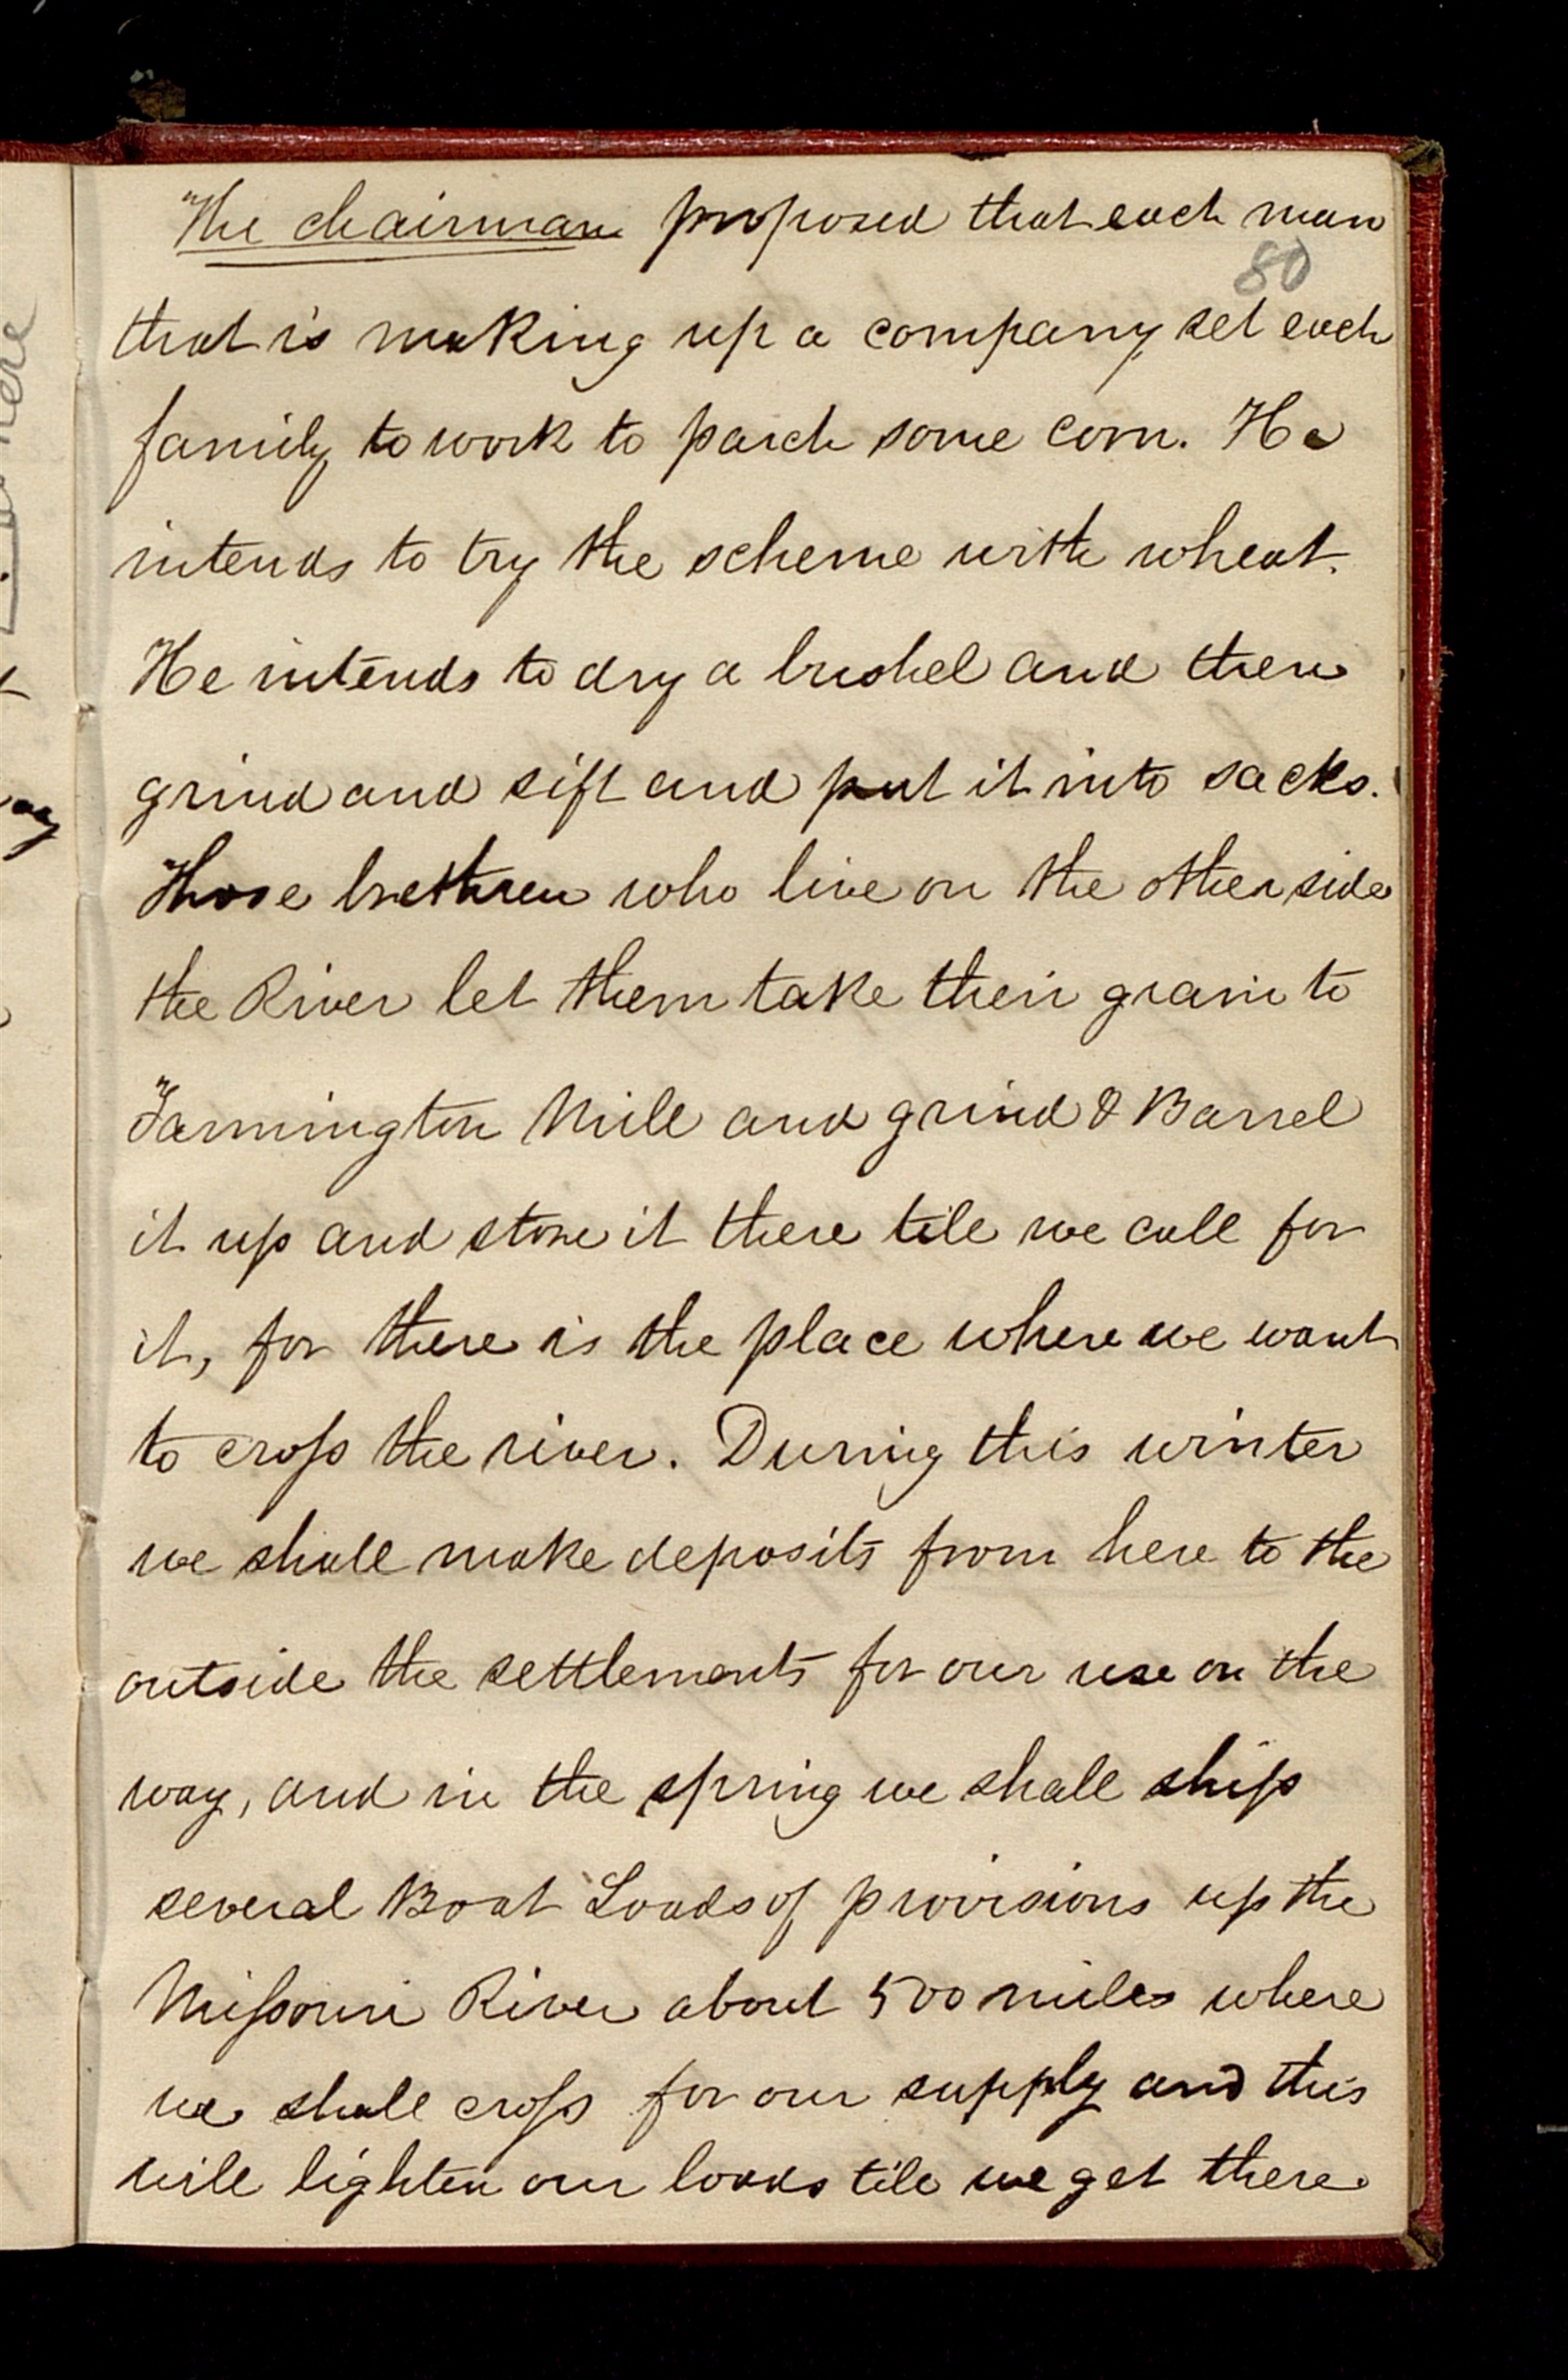 The chairman proposed that each man
80
that is making up a company set each
family to work to parch some corn. He
intends to try the scheme with wheat.
He intends to dry a bushel and then
grind and sift and put it into sacks.
Those brethren who live on the other side
the River let them take their grain to
Farmington Mill and grind & Barrel
it up and store it there till we call for
it, for there is the place where we want
to cross the river. During this winter
we shall make deposits from here to the
outside the settlements for our use on the
way, and in the spring we shall ship
several Boat Loads of provisions up the
Missouri River about 500 miles where
we shall cross for our supply and this
will lighten our loads till we get there.